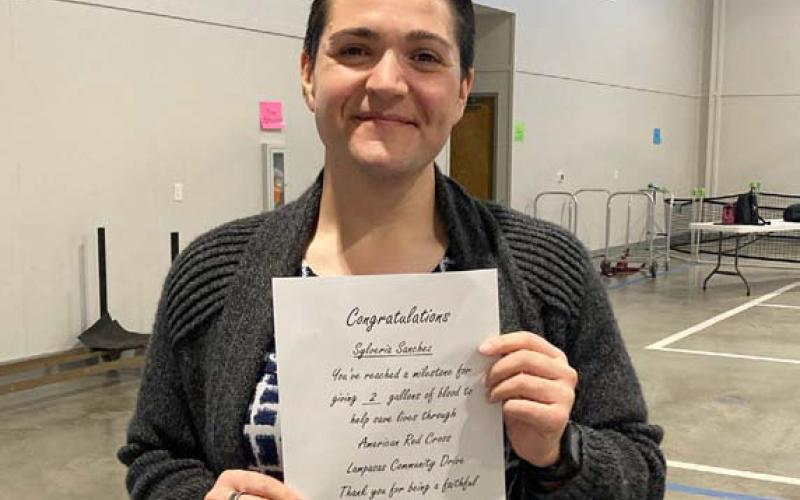 Congratulations
Sylveria Sanchez
You've reached a milestone for
giving 2 gallons of blood to
help save lives through
American Red Cross
Lampasas Community Drive
Thank you for being a faithful